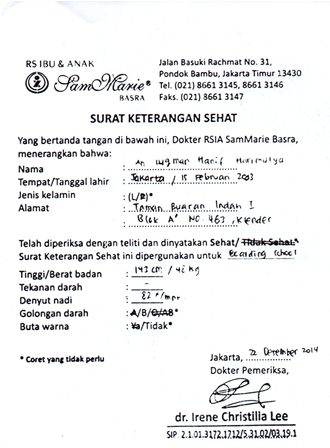 RS IBU & ANAK
SamMarie®
BASRA
Jalan Basuki Rachmat No. 31,
Pondok Bambu, Jakarta Timur 13430
Tel. (021) 8661 3145, 8661 3146
Faks. (021) 8661 3147
SURAT KETERANGAN SEHAT
Yang bertanda tangan di bawah ini, Dokter RSIA SamMarie Basra,
menerangkan bahwa:
Nama : An Luqman Hanif
Tempat/Tanggal lahir : Jakarta / 15 Februari 2003
Jenis kelamin : (L/P)*
Alamat : Taman Buaran Indah I
Blok A NO. 463, Klender
Telah diperiksa dengan teliti dan dinyatakan Sehat/ Tidak Sehat.*
Surat Keterangan Sehat ini dipergunakan untuk Boarding school
Tinggi/Berat badan : 143 cm / 42 kg
Tekanan darah : -
Denyut nadi : 82 x/mnt
Golongan darah : A/B/O/AB*
Buta warna : Ya/Tidak*
* Coret yang tidak perlu
Jakarta, 22 Desember 2014
Dokter Pemeriksa,
dr. Irene Christilia Lee
SIP: 2.1.01.3172.1712/5.31.02/03.19.1